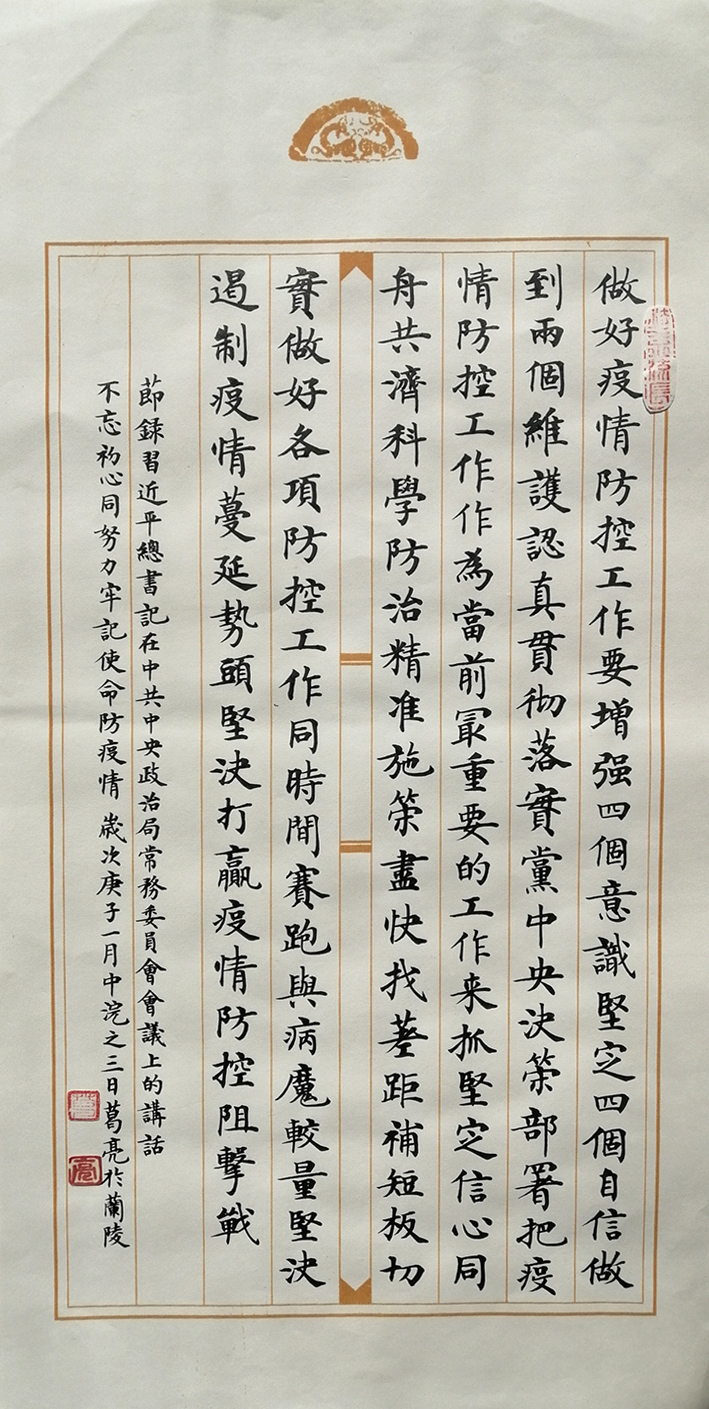 做好疫情防控工作要增强四個意識堅定四個自信做
到兩個維護認真貫彻落實黨中央決策部署把疫
情防控工作作為當前冣重要的工作来抓堅定信心同
舟共濟科學防治精准施策盡快找差距補短板切
實做好各項防控工作同時間賽跑與病魔較量堅決
遏制疫情蔓延勢頭堅決打贏疫情防控阻擊戰
節録習近平總書記在中共中央政治局常務委員會會議上的講話
不忘初心同努力牢記使命防疫情 歲次庚子一月中浣之三日葛亮於蘭陵
葛
亮